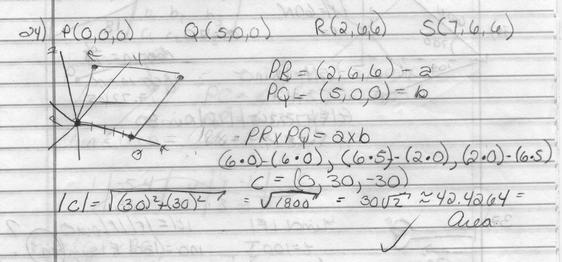 24) P(0,0,0) Q(5,0,0) R(2,6,6) S(7,6,6)
PR = (2,6,6) = a
PQ = (5,0,0) = b
PR x PQ = a x b
(6·0)-(6·0), (6·5)-(2·0), (2·0)-(6·5)
c = (0, 30, -30)
|c| = √(30)²+(30)² = √1800 = 30√2 ≈ 42.4264 =
Area